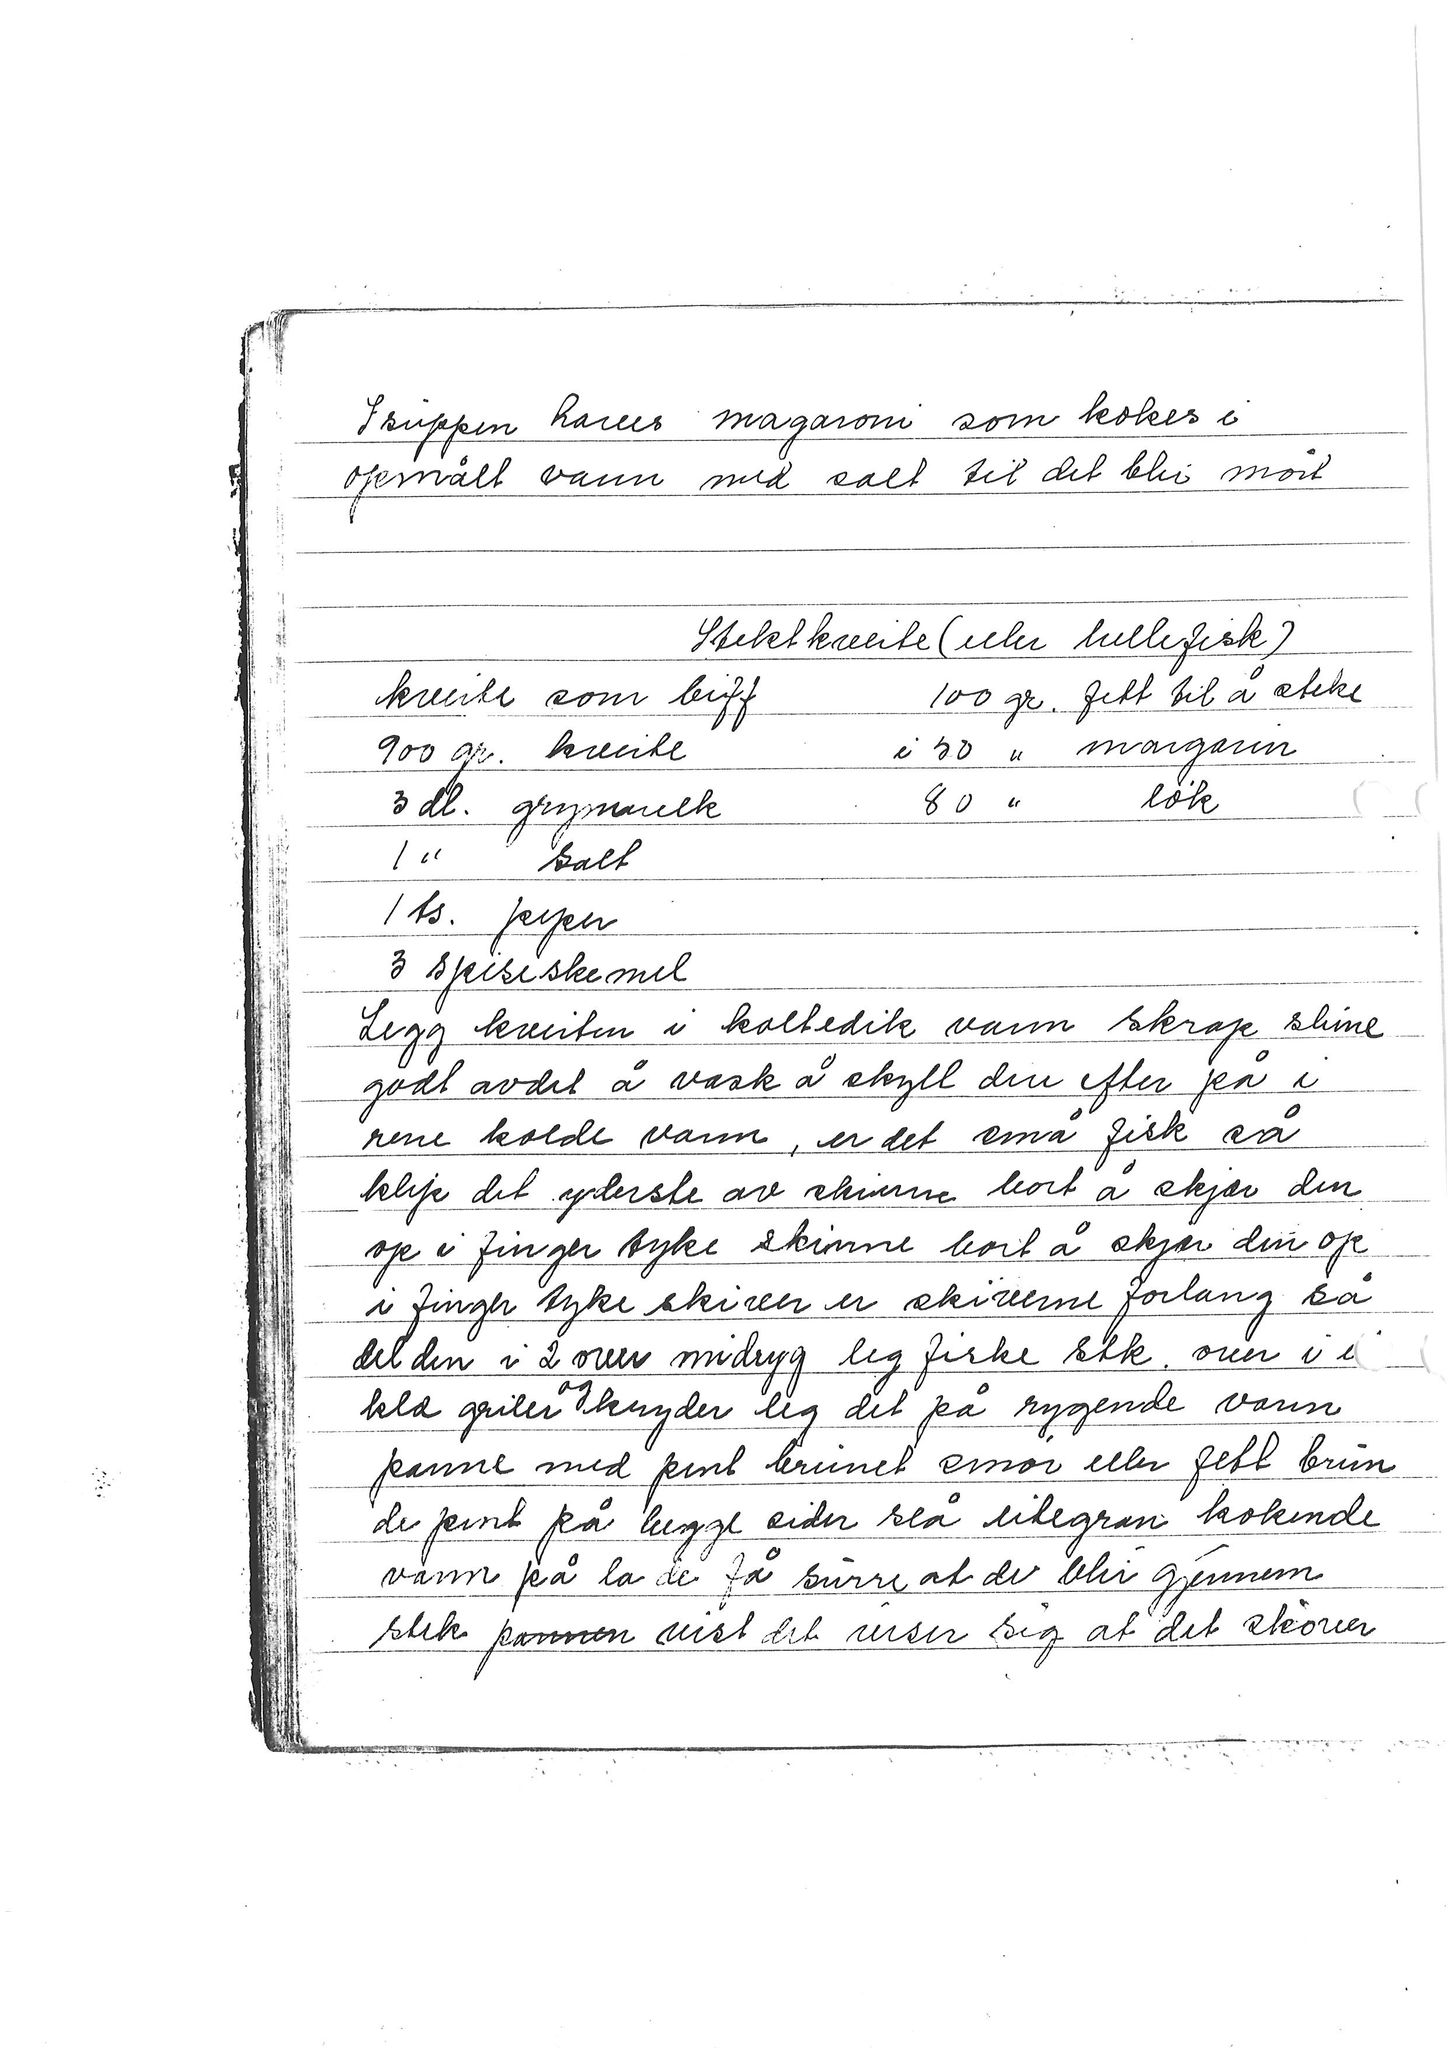 I suppen haves magaroni som kokes i
opmålt vann med salt til det bli mört
Stektkveite (eller hellefisk)
kveite som biff 100 gr. fett til å steke
900 gr. kveite i 50 " margarin
3 dl. grymmelk 80 " lök
1 " salt
1 ts. peper
3 spiseskemel
Legg kveiten i koltedik vann skrap slime
godt avdet å vask å skyll den efter på i
rene kolde vann, er det små fisk så
klip det yderste av skinne bort å skjær den
op i finger tyke skinne bort å skjær den op
i finger tyke skiver er skiverne forlang så
del den i 2 over midryg leg fiske stk. over i i
kld griler og kryder leg det på rygende varm
panne med pent brunet smör eller fett brun
de pent på begge sider slå litegran kokende
vann på la de få surre at de blir gjennem
stek pannen vist det viser sig at det skorver